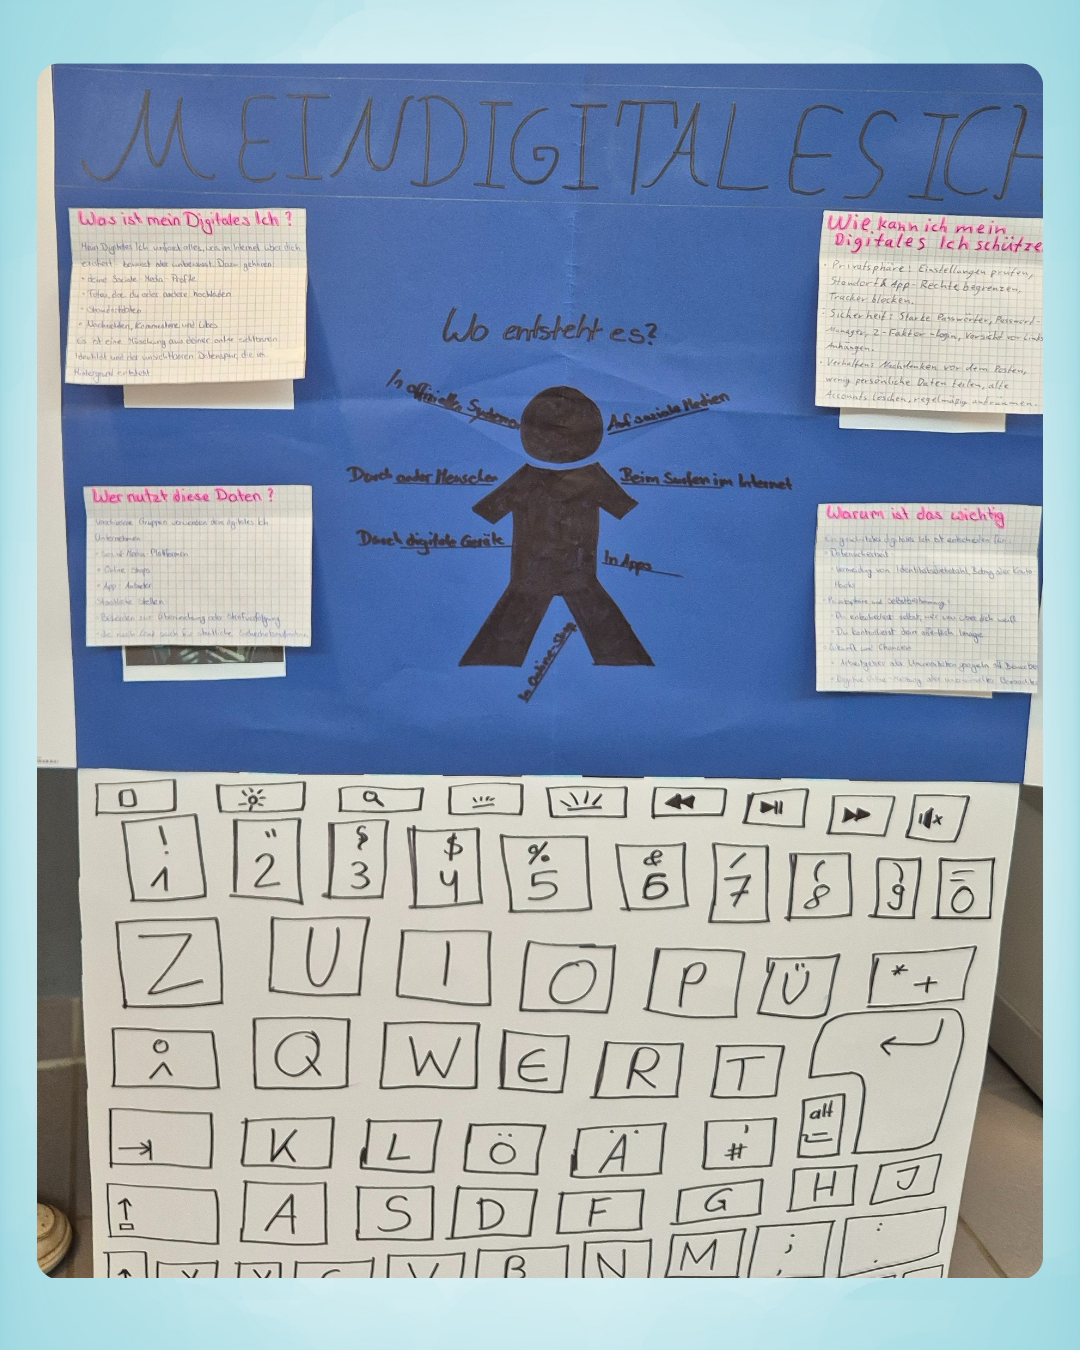 MEIN DIGITALES ICH
Was ist mein Digitales Ich?
Mein Digitales Ich umfasst alles, was im Internet über dich
existiert bewusst oder unbewusst. Dazu gehören:
• deine Soziale-Media-Profile
• Fotos, die du oder andere hochladen
• Standortdaten
• Nachrichten, Kommentare und Likes
Es ist eine Mischung aus deiner online sichtbaren
Identität und der unsichtbaren Datenspur, die im
Hintergrund entsteht.
Wie kann ich mein
Digitales Ich schütze
• Privatsphäre: Einstellungen prüfen,
Standort & App-Rechte begrenzen,
Tracker blocken.
• Sicherheit: Starke Passwörter, Passwort-
Manager, 2-Faktor-login, Vorsicht vor Links
Anhängen.
• Verhalten: Nachdenken vor dem Posten,
wenig persönliche Daten teilen, alte
Accounts löschen, regelmäßig aufräumen.
Wo entsteht es?
In offiziellen Systeme
Auf soziale Medien
Durch ander Menschen
Beim Surfen im Internet
Durch digitale Geräte
In Apps
In Online-Shop
Wer nutzt diese Daten?
Verschiedene Gruppen verwenden dein digitales Ich
Unternehmen
• Social Media Plattformen
• Online Shops
• App-Anbieter
Staatliche Stellen
• Behörden zur Überwachung oder Strafverfolgung
• Je nach Land auch für staatliche
Warum ist das wichtig
Ein geschütztes digitales Ich ist entscheidend für:
• Datensicherheit
• Vermeidung von Identitätsdiebstahl, Betrug oder Konto
Hacks
• Privatsphäre und Selbstbestimmung:
• Du entscheidest selbst, wer was über dich weiß
• Du kontrollierst dein öffentlich Image
• Zukunft und Chancen
• Arbeitgeber oder Universitäten googeln oft Bewerbe
! " § $ % & / ( ) =
1 2 3 4 5 6 7 8 9 0
Z U I O P Ü * +
Q W E R T
K L Ö Ä ' # alt
A S D F G H J
V B N M ; :